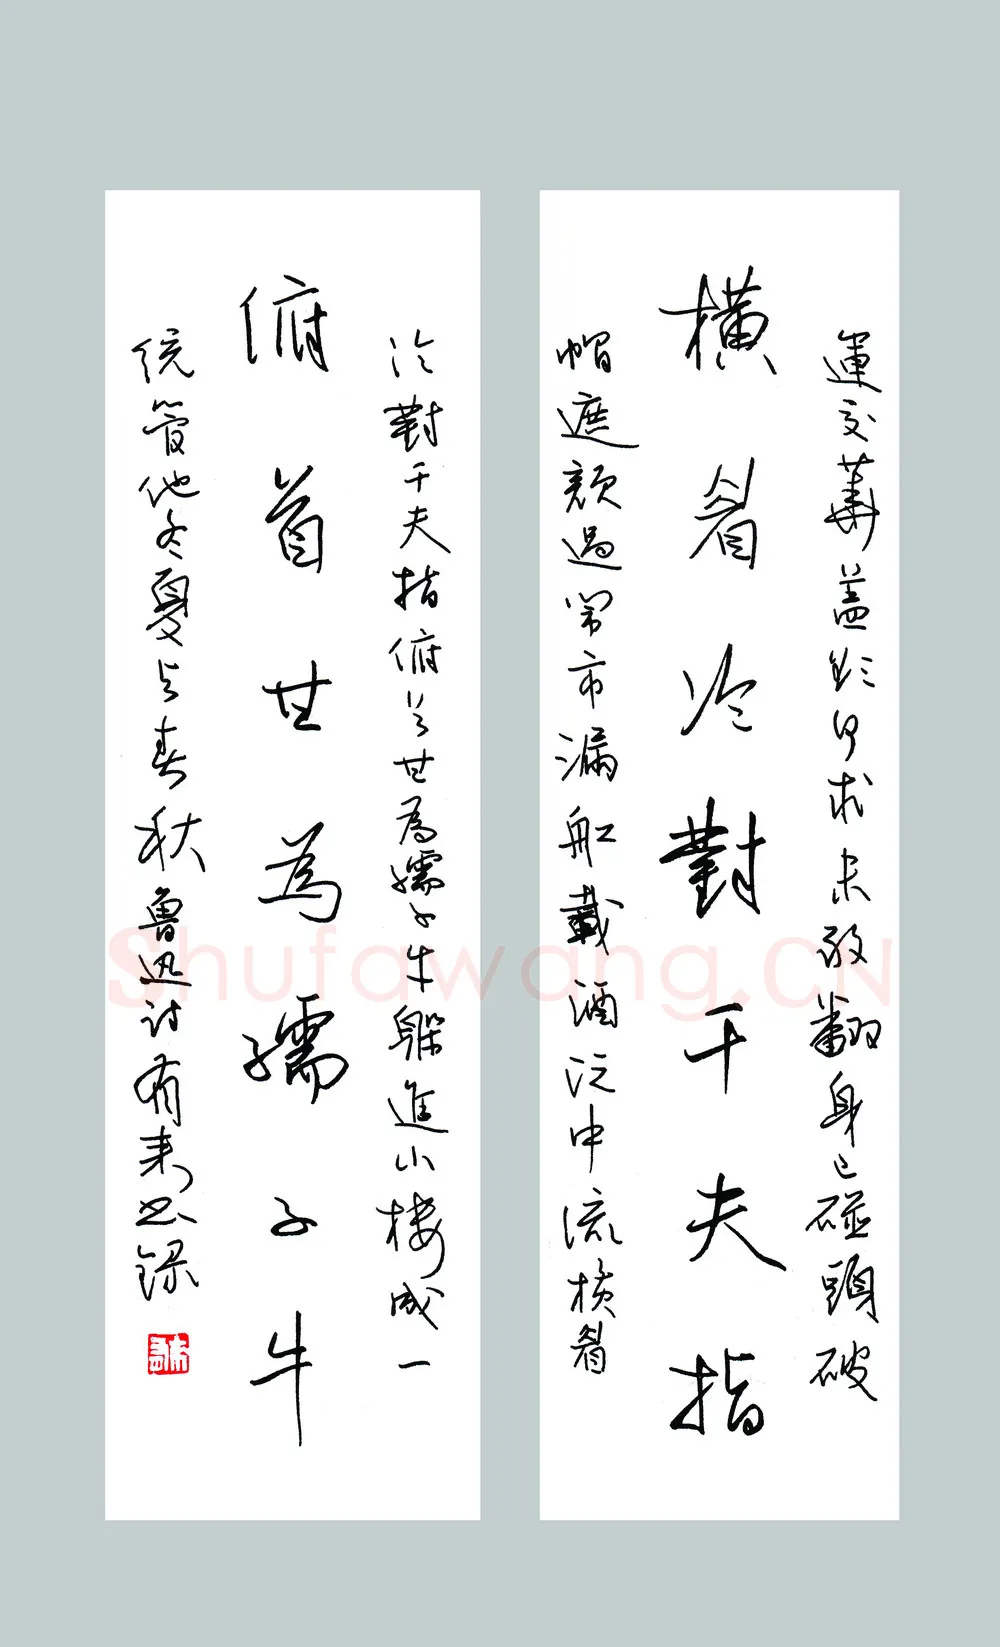 運交華蓋欲何求未敢翻身已碰頭破
橫眉冷對千夫指
帽遮顏過鬧市漏舩載酒泛中流橫眉
冷對千夫指俯首甘為孺子牛躲進小樓成一
俯首甘為孺子牛
統管他冬夏与春秋魯迅詩有书錄
Shufawang.CN